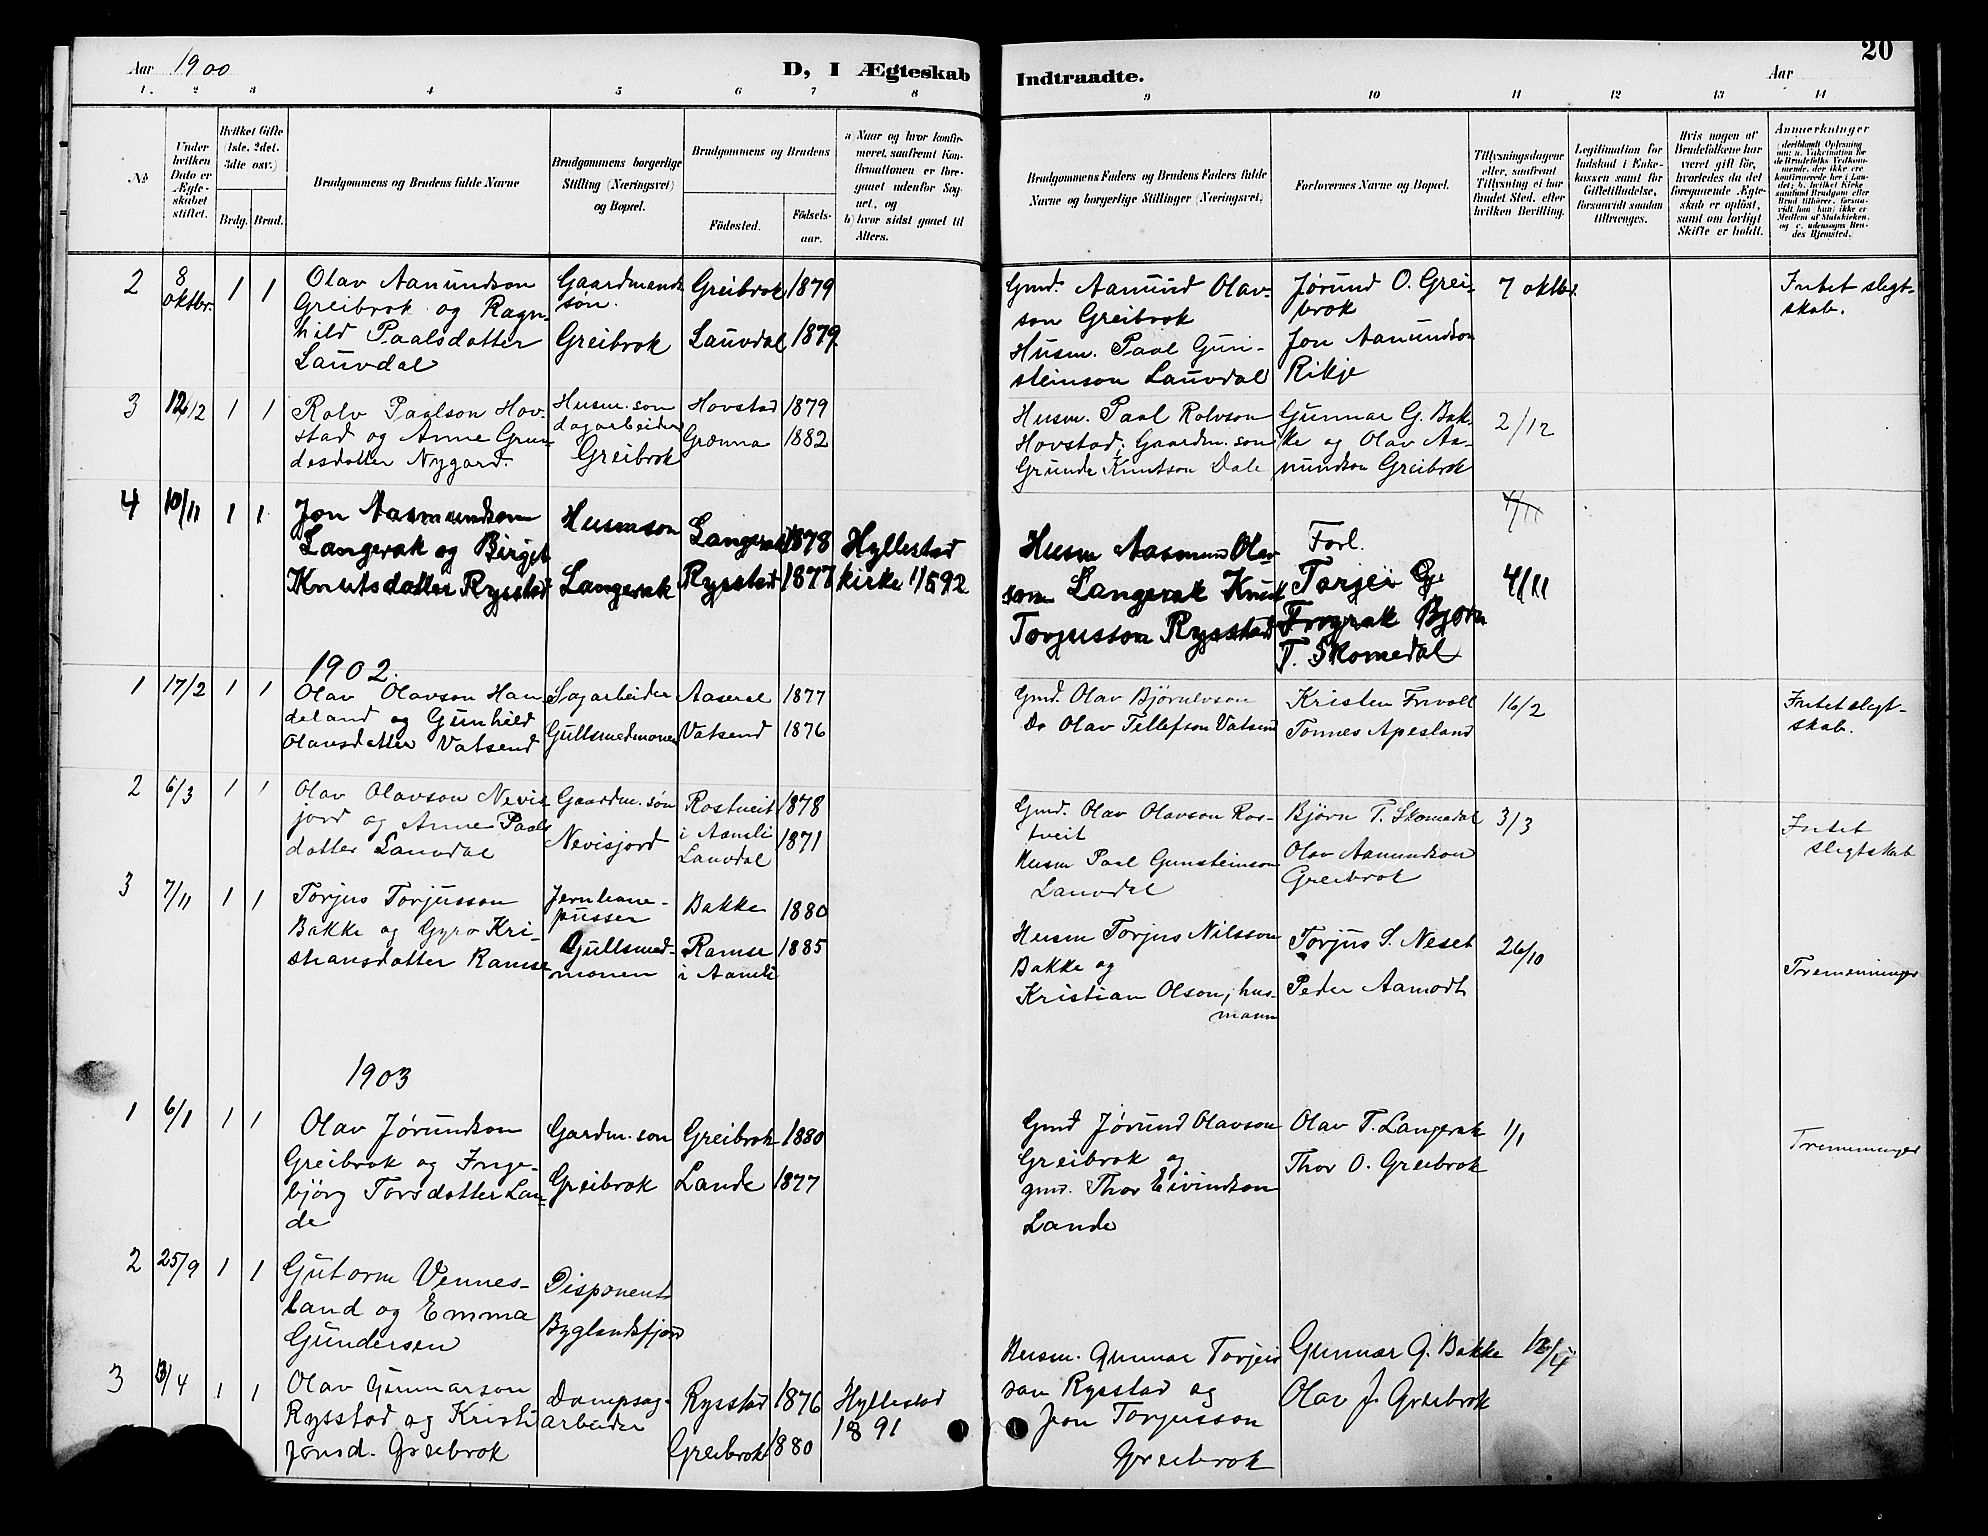 20
Aar 1900
D, I Ægteskab Indtraadte.
Aar
1. 2 3 4 5 6 7 8 9 10 11 12 13 14
№
Under hvilken Dato er Ægteskabet stiftet.
Hvilket Gifte (1ste, 2det, 3die osv.)
Brdg. Brud.
Brudgommens og Brudens fulde Navne
Brudgommens borgerlige Stilling (Næringsvei) og Bopæl.
Brudgommens og Brudens
Födested.
Födsels-aar.
a) Naar og hvor konfirmeret, saafremt Konfirmationen er foregaaet udenfor Sognet, og
b) hvor sidst gaaet til Alters.
Brudgommens Faders og Brudens Faders fulde Navne og borgerlige Stillinger (Næringsvei)
Forlovernes Navne og Bopæl.
Tillysningsdagene eller, saafremt Tillysning ei har fundet Sted, efter hvilken Bevilling.
Legitimation for Indskud i Enkekassen samt for Giftetilladelse, forsaavidt saadan tiltrænges.
Hvis nogen af Brudefolkene har været gift för, hvorledes da det foregaaende Ægteskab er oplöst, samt om lovligt Skifte er holdt.
Anmærkninger
2 8 oktbr. 1 1
Olav Aamundson
Greibrok og Ragn-
hild Paalsdatter
Lauvdal
Gaardmands
søn.
Greibrok
Greibrok 1879
Lauvdal 1879
Gmd. Aamund Olav-
son Greibrok
Husm. Paal Gun-
steinson Lauvdal
Jørund O. Grei-
brok
Jon Aamundson
Rikje
7 oktbr.
Intet slegt-
skab.
3 12/12 1 1
Rolv Paalson Hov-
stad og Anne Grun-
desdatter Nygard.
Husm. son
dagarbeider
Greibrok
Hovstad 1879
Grønna 1882
Husm. Paal Rolvson
Hovstad; Gaardm. son
Grunde Knutson Dale
Gunnar G. Bak-
ke og Olav Aa-
mundson Greibrok
2/12
4 10/11 1 1
Jon Aasmundson
Langerak og Birget
Knutsdatter Rysstad
Husmson
Langerak
Langerak 1878
Rysstad 1877
Hyllestad
kirke 1/592
Husm Aasmund Olav
son Langerak Knut
Torjusson Rysstad
Forl.
Torjei G
Froyrak Bjorn
T. Skomedal
4/11
4/11
1902.
1 17/2 1 1
Olav Olavson Han
deland og Gunhild
Olavsdatter Vatsend
Sagarbeider
Gullsmedmonen
Aaseral 1877
Vatsend 1876
Gmd. Olav Bjørnlvson
Do Olav Tellefson Vatsend
Kristen Frivoll
Tonnes Apesland
16/2
Intet slegt-
skab.
2 6/3 1 1
Olav Olavson Nevis
jord og Anne Paals
datter Lauvdal
Gaardm. søn
Nevisjord
Rostveit 1878
i Aamli
Lauvdal 1871
Gmd. Olav Olavson Ros-
tveit
Husm Paal Gunsteinson
Lauvdal
Bjørn T. Skomedal
Olav Aamundson
Greibrok
3/3
Intet
slegtskab
3 7/11 1 1
Torjus Torjusson
Bakke og Gyro Kri-
stiansdatter Ramse
Jernbane-
pusser
Gullsmed-
monen
Bakke 1880
Ramse 1885
i Aamli
Husm Torjus Nilsson
Bakke og
Kristian Olson, hus-
mann
Torjus S. Neset
Peder Aamodt
26/10
Tremenninger
1903
1 6/1 1 1
Olav Jørundson
Greibrok og Inge-
björg Torsdatter Lan-
de
Gardm. son
Greibrok
Greibrok 1880
Lande 1877
Gmd Jørund Olavson
Greibrok og
gmd. Thor Eivindson
Lande
Olav T. Langerak
Thor O. Greibrok
1/1
Tremenninger
2 25/9 1 1
Gutorm Vennes-
land og Emma
Gundersen
Disponent
Byglandsfjord
3 13/4 1 1
Olav Gunnarson
Rysstad og Kristi
Jonsd. Greibrok
Dampsag-
arbeider
Rysstad 1876
Greibrok 1880
Hyllestad
1891
Husm. Gunnar Torjeis
son Rysstad og
Jon Torjusson
Greibrok
Gunnar G. Bakke
Olav J. Greibrok